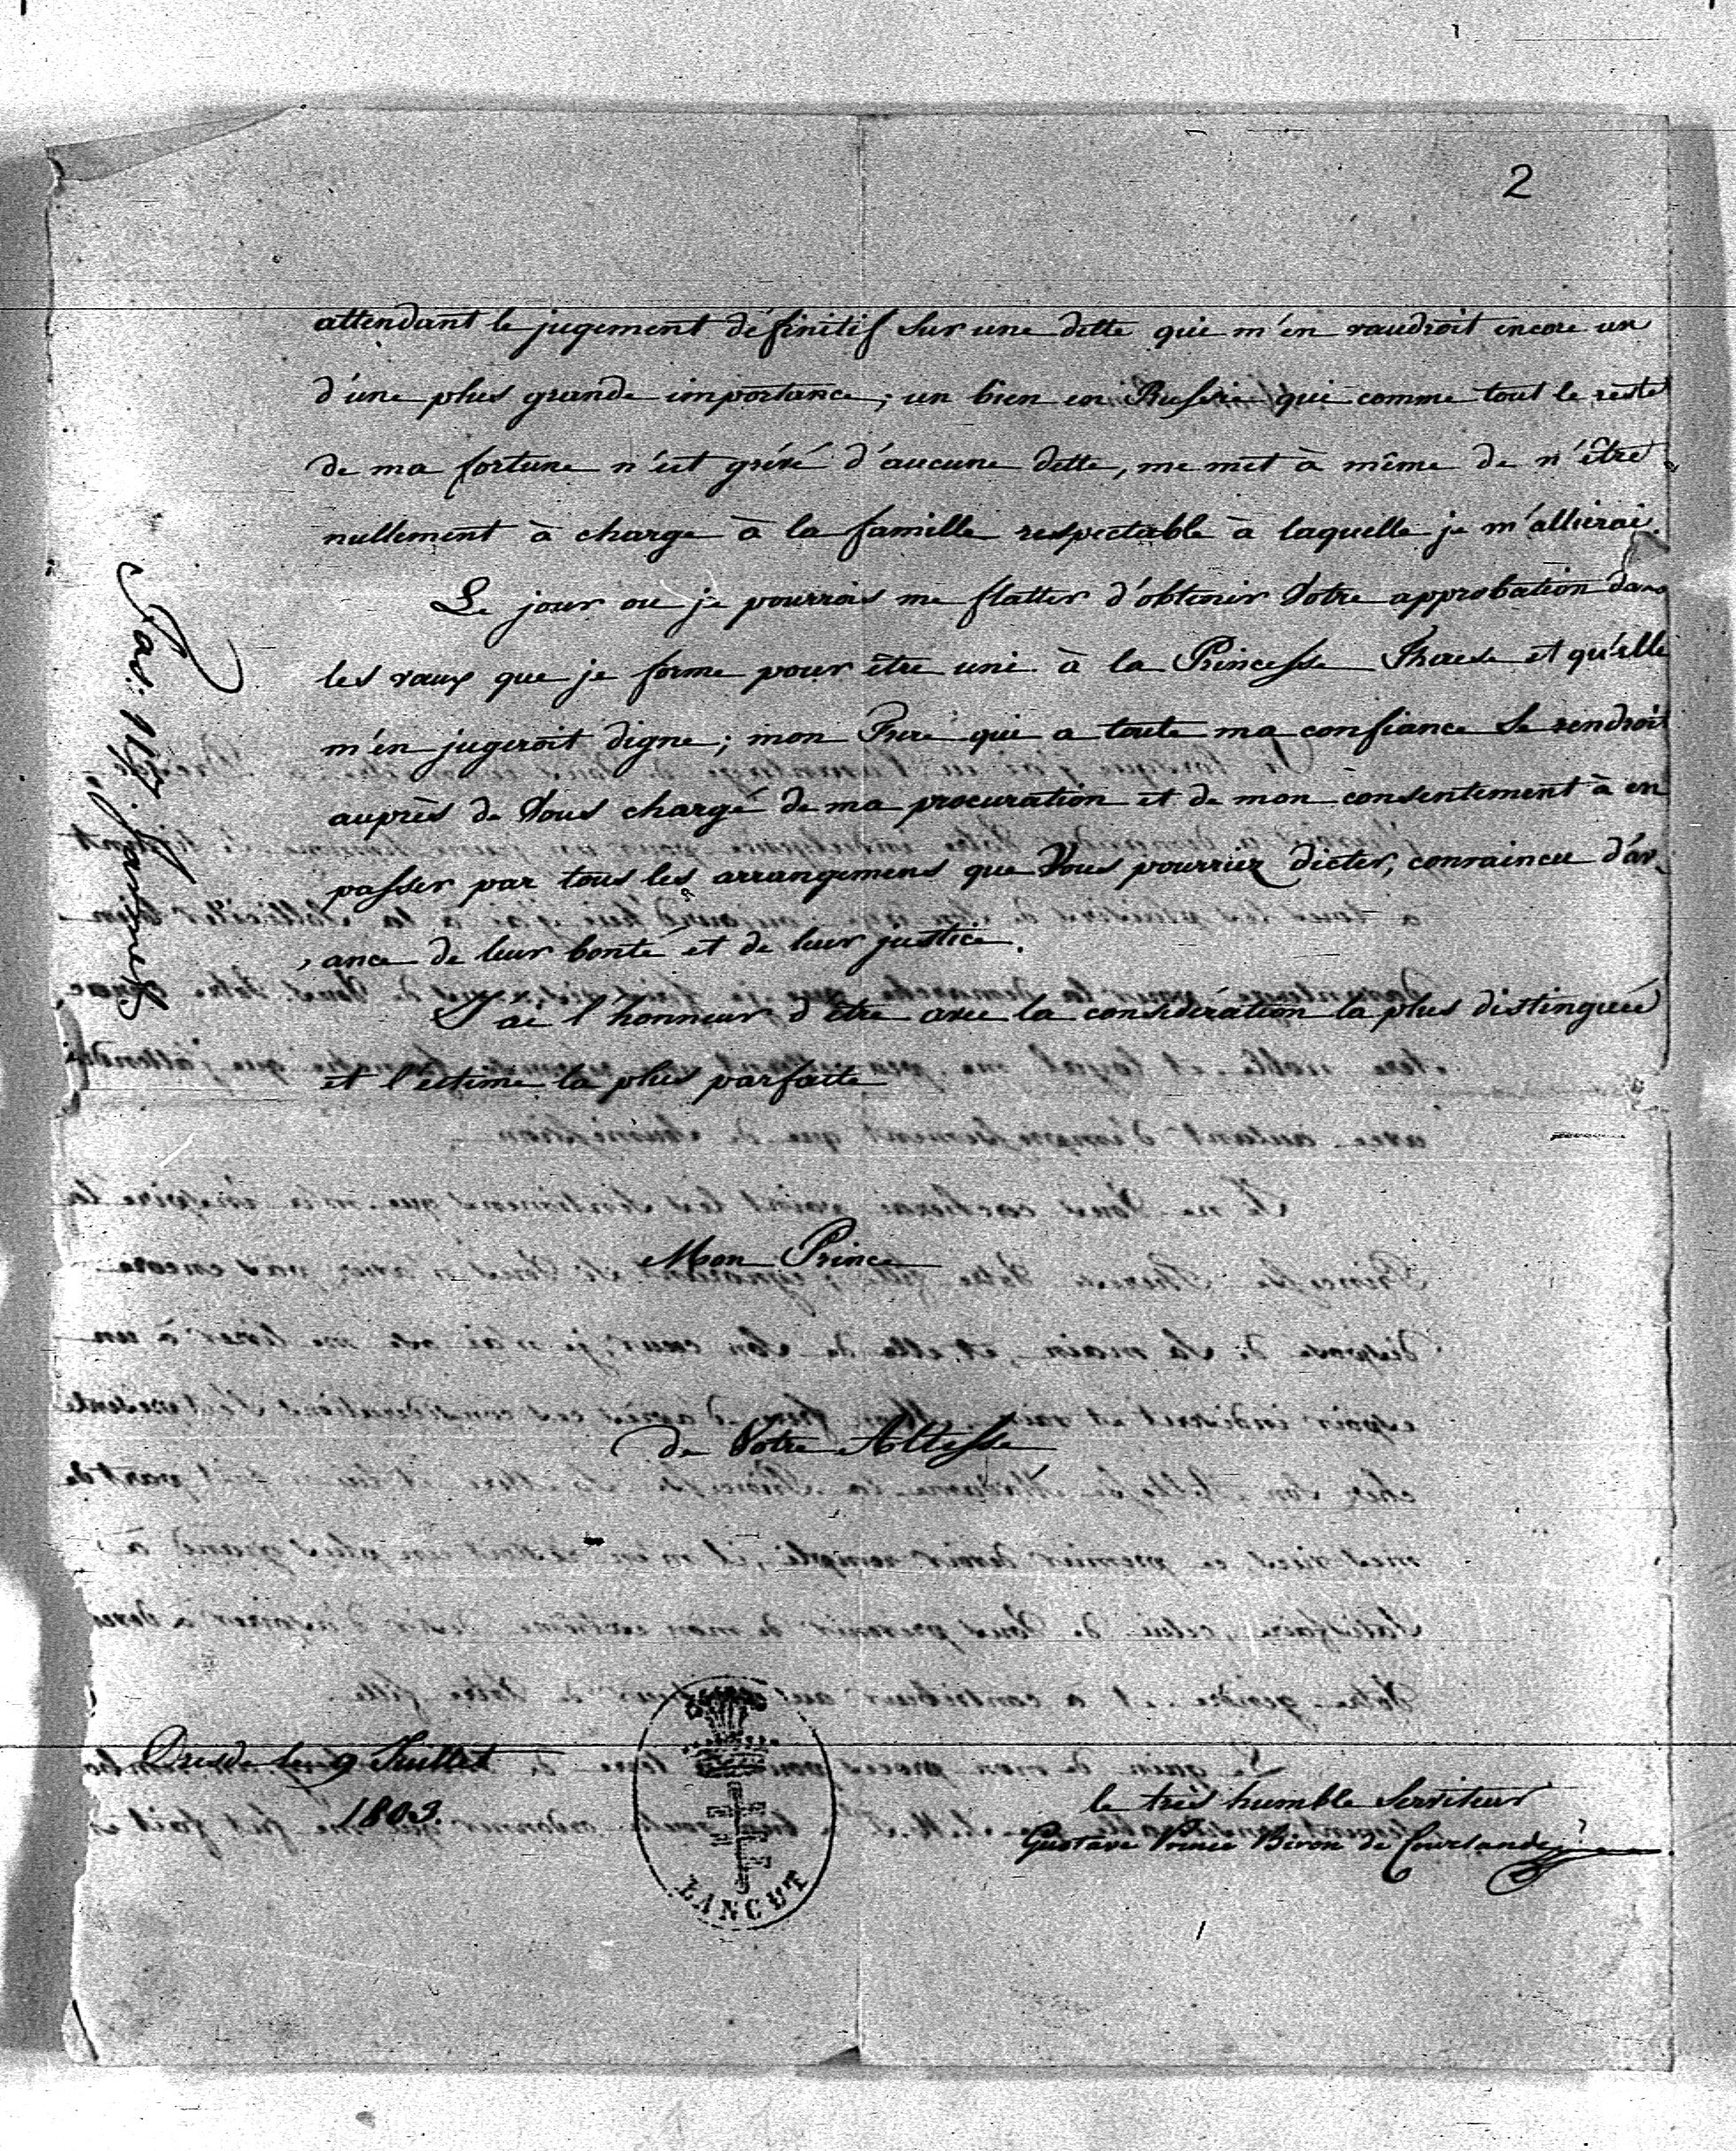 2
attendant le jugement définitif sur une dette qui m'en vaudroit encore un
d'une plus grande importance; un bien en Russie qui comme tout le reste
de ma fortune n'est grévé d'aucune dette, me met à même de n'être
nullement à charge à la famille respectable à laquelle je m'allierai.
Le jour ou je pourrois me flatter d'obtenir Votre approbation dans
les vœux que je forme pour être uni à la Princesse Therese et qu'elle
m'en jugeroit digne; mon Frere qui a toute ma confiance se rendroit
auprès de Vous chargé de ma procuration et de mon consentement à en
passer par tous les arrangemens que Vous pourriez dicter, convaincu d'av-
ance de leur bonté et de leur justice.
J'ai l'honneur d'être avec la considération la plus distinguée
et l'estime la plus parfaite
Mon Prince
de Votre Altesse
Dresde le 9 Juillet
1803.
le très humble Serviteur
Gustave Prince Biron de Courlande
ŁAŃCUT